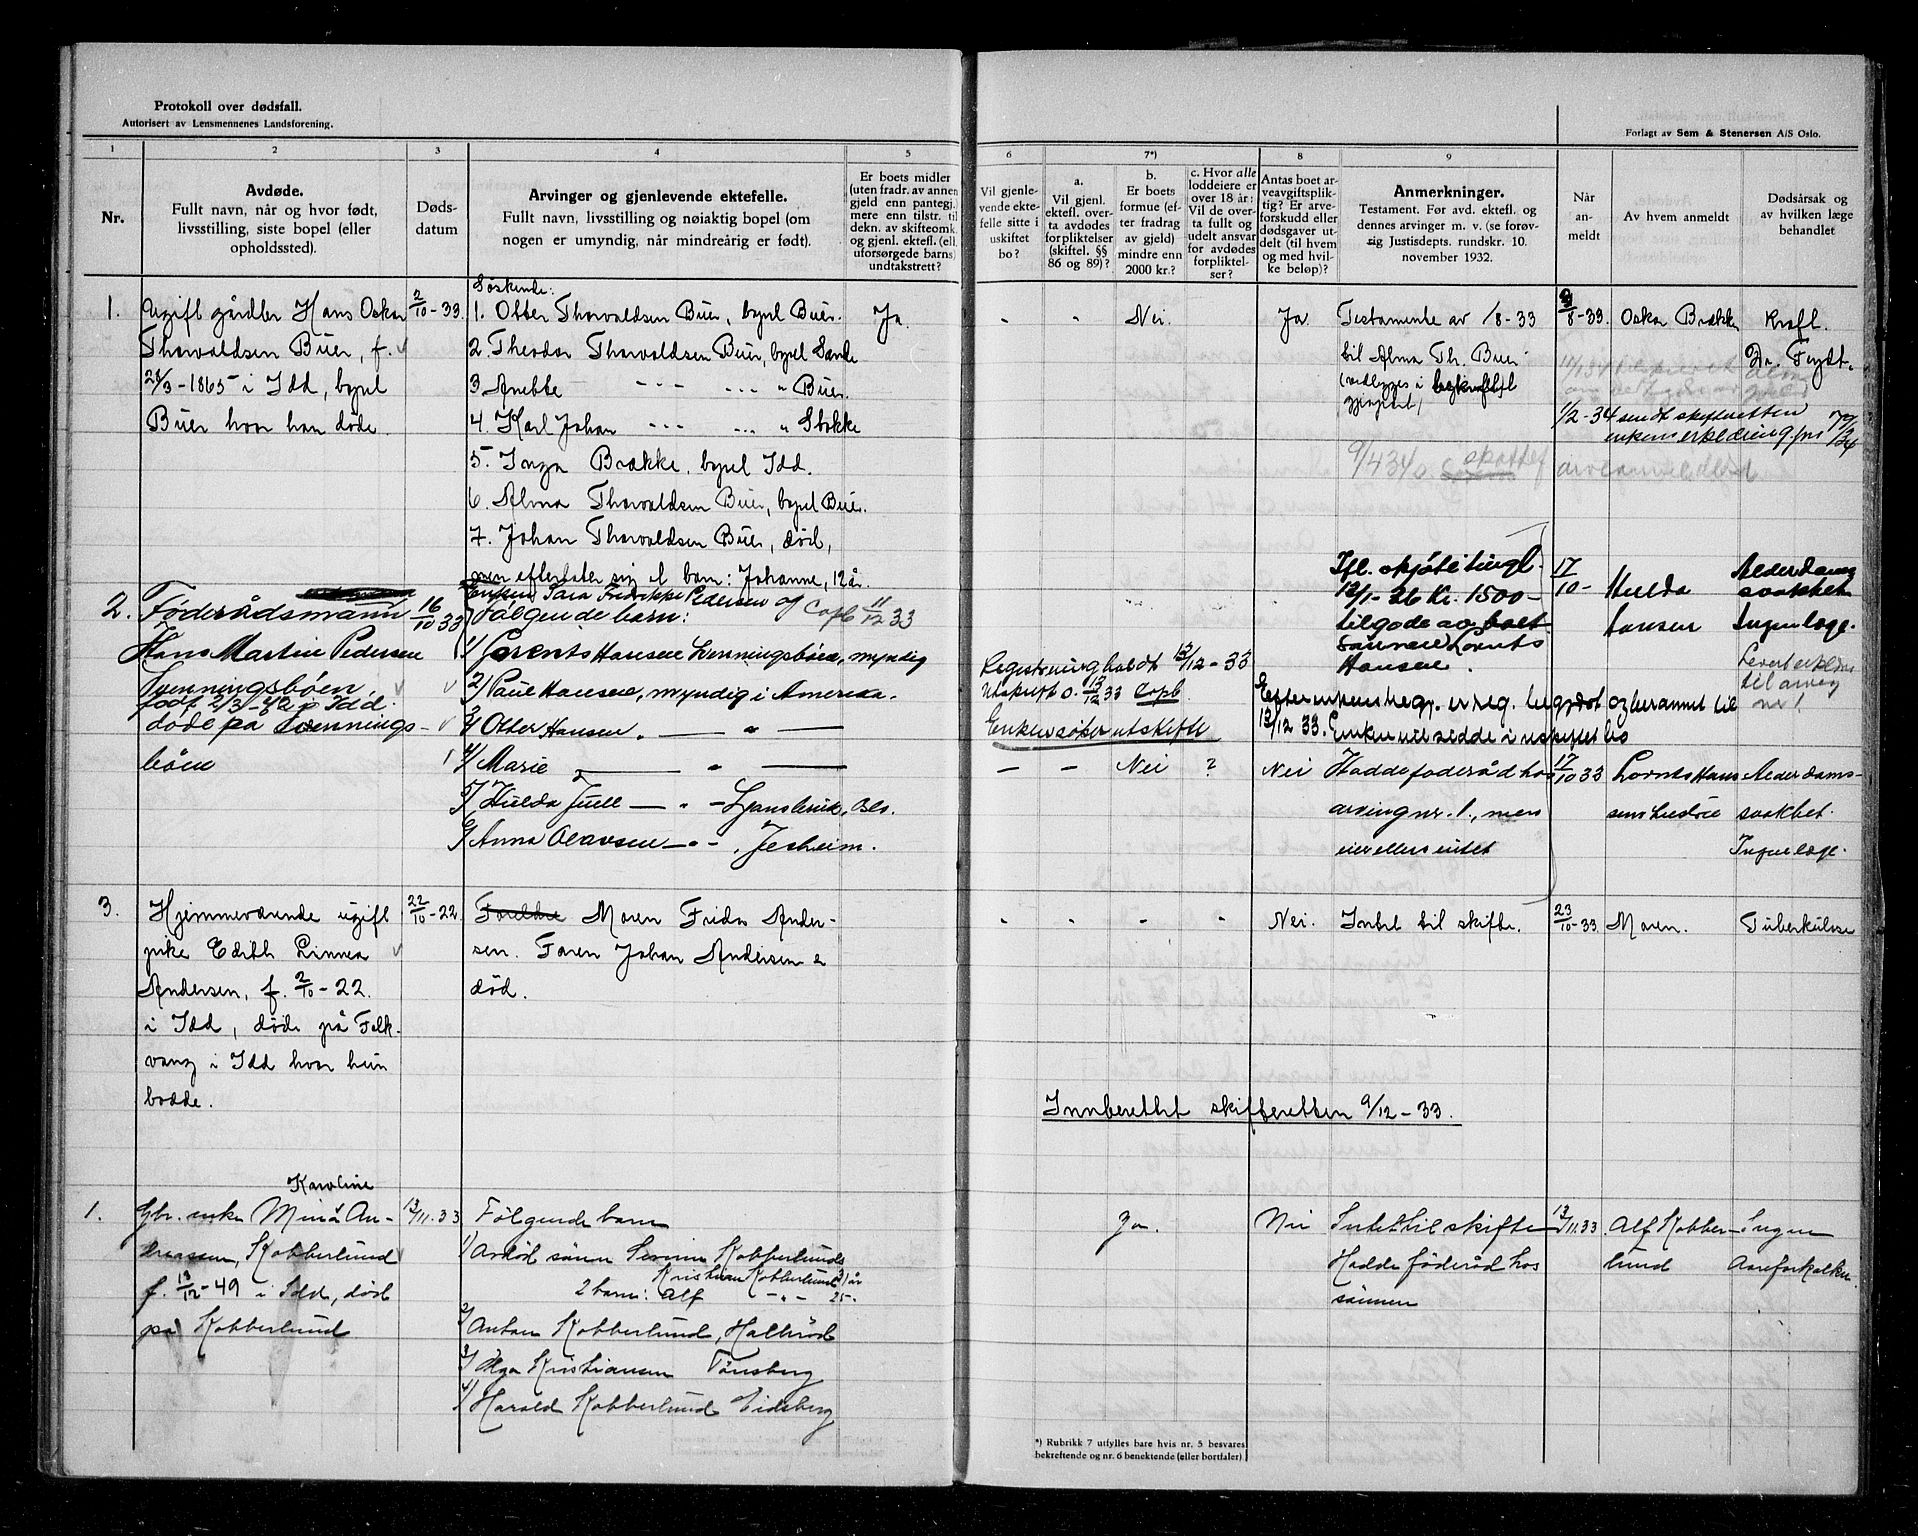 Protokoll over dødsfall.
Autorisert av Lensmennenes Landsforening.
Forlagt av Sem & Stenersen A/S Oslo.
1 2 3 4 5 6 7*) 8 9
Nr.
Avdøde.
Fullt navn, når og hvor født,
livsstilling, siste bopel (eller
opholdssted).
Døds-
datum
Arvinger og gjenlevende ektefelle.
Fullt navn, livsstilling og nøiaktig bopel (om
nogen er umyndig, når mindreårig er født).
Er boets midler
(uten fradr. av annen
gjeld enn pantegj.)
mere enn tilstr. til
dekn. av skifteomk.
og gjenl. ektef. (ell.
uforsørgede barns)
undtakstrett?
Vil gjenle-
vende ekte-
felle sitte i
uskiftet
bo?
a.
Vil gjenl.
ektefl. over-
ta avdødes
forpliktelser
(skiftel. §§
86 og 89)?
b.
Er boets
formue (ef-
ter fradrag
av gjeld)
mindre enn
2000 kr.?
c. Hvor alle
loddeiere er
over 18 år:
Vil de over-
ta fullt og
udelt ansvar
for avdødes
forpliktel-
ser?
Antas boet ar-
veavgiftsplik-
tig? Er arve-
forskudd eller
dødsgaver ut-
delt (til hvem
og med hvil-
ke beløp)?
Anmerkninger.
Testament. Før avd. ektefl. og
dennes arvinger m. v. (se forøv-
rig Justisdepts. rundskr. 10.
november 1932.
Når
an-
meldt
Av hvem anmeldt
Dødsårsak og
av hvilken læge
behandlet
1.
Ugift gårdbr Hans Oskar
Thorvaldsen Buer, f.
28/3-1865 i Idd, bopel
Buer hvor han døde.
2/10-33
Søskende:
1. Otter Thorvaldsen Buer, bopel Buer.
2. Theodor Thorvaldsen Buer, bopel Sande
3 Anette --- --- " Buer.
4. Karl Johan --- --- " Stokke
5. Inga Brække, bopel Idd.
6. Alma Thorvaldsen Buer, bopel Buer.
7. Johan Thorvaldsen Buer, død,
men efterlater sig et barn: Johanne, 12 år.
Ja.
" " Nei.
Ja.
Testamente av 1/8-33
til Alma Th. Buer
(vedlegges i bekreftet
gjenpart,
Oskar Brække
Kreft.
Dr. Frydt.
1/2-34 sendt skifteretten
9/4 34
2.
Føderådsmann
Hans Martin Pedersen
Svenningsbøen.
født 2/3-42 i Idd.
døde på Svennings-
bøen
16/10 33
Enken Sara Fredrikke Pedersen og
følgende barn:
Copb 11/12 33
1/ Lorents Hansen Svenningsbøen, myndig
2/ Paul Hansen, myndig i Amerika.
3/ Otter Hansen, — " —
4/ Marie — " —
5/ Hulda Juell — " — Ljansbruk, Oslo.
6/ Anna Olavsen — " — , Jesheim.
Registrering holdt 12/12-33
Utskrift o. 13/12 33 Copb
Enken søker utskifte
— — Nei ?
Ifl. skjøte tingl.
12/1-26 Kr. 1500-
tilgode av boet
Sønnen Lorents
Hansen.
17/10-
Hulda
Hansen
Alderdoms
svakhet
Ingen læge.
Efter enkens begj. er reg. begjært og berammet til
12/12 33. Enken vil sidde i uskiftet bo
Nei
Hadde føderåd hos
arving nr. 1., men
eier ellers intet
17/10 33
Lornts Han-
sens hustrue
Alderdoms-
svakhet.
Ingen læge.
3.
Hjemmeværende ugift
pike Edith Linnea
Andersen, f. 2/10-22.
i Idd, døde på Folk-
vang i Idd hvor hun
bodde.
22/10-22.
Foreldre Moren Frida Ander-
sen. Faren Johan Andersen e
død.
" " " "
Nei.
Intet til skifte.
23/10-33
Moren.
Tuberkulose
Innberettet skifteretten 9/12-33.
1.
Karoline
Gbr. enke Mina An-
dreassen, Kobberlund
f. 13/12-49 i Idd, død
på Kobberlund
12/11.33
Følgende barn
1/ Avdød sønn Severin Kobberlunds
2 barn: Kristian Kobberlund 31 år
Alf — " — 25-
2/ Anton Kobberlund, Halbrød
3/ Olga Kristiansen Tønsberg
4/ Harald Kobberlund Eidsberg
Ja.
Nei
Intet til skifte
Hadde føderåd hos
sønnen
13/11.33
Alf Kobber-
lund
Ingen
Aareforkalkn.
*) Rubrikk 7 utfylles bare hvis nr. 5 besvares
bekreftende og nr. 6 benektende (eller bortfaler)